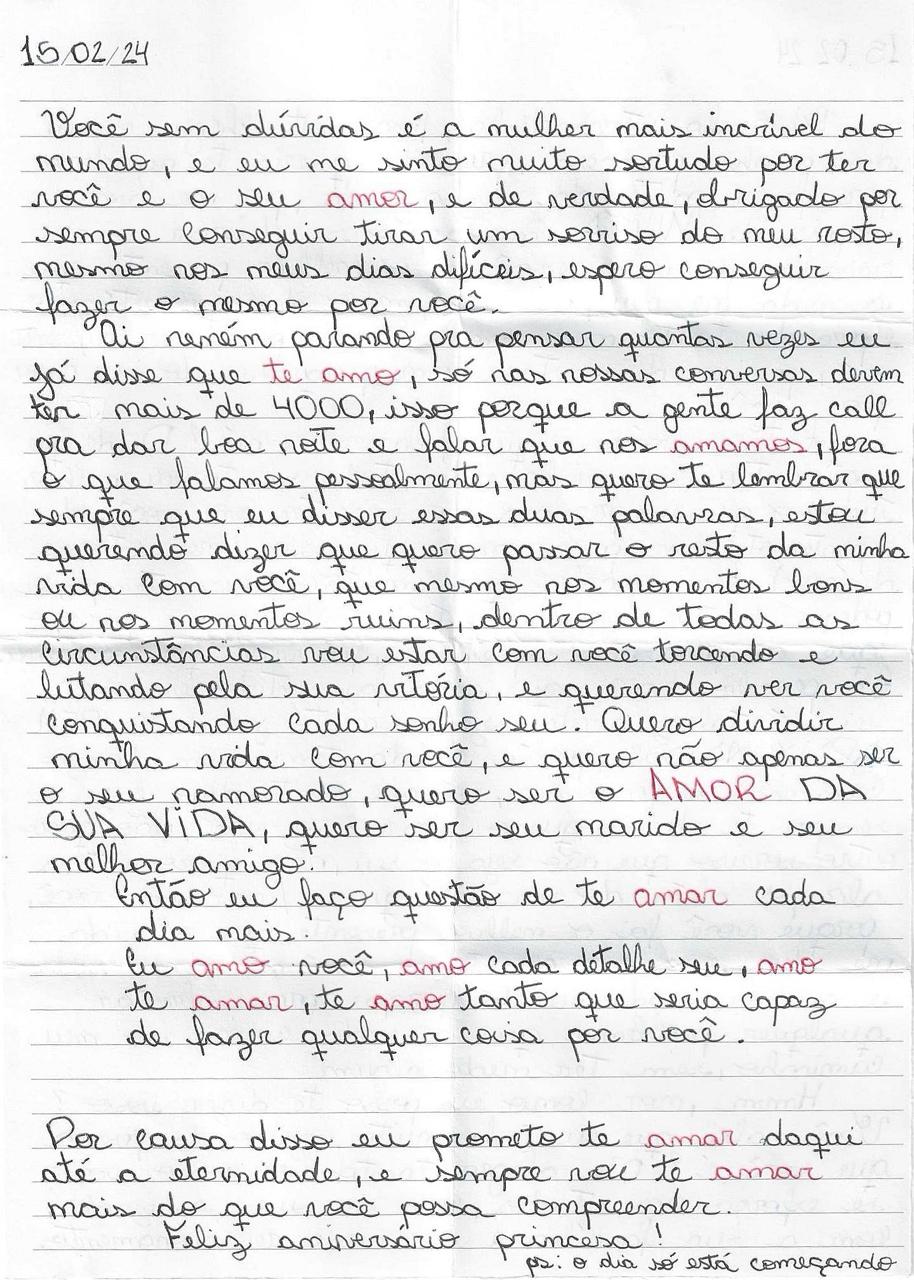 15/02/24
Você sem dúvidas é a mulher mais incrível do
mundo, e eu me sinto muito sortudo por ter
você e o seu amor, e de verdade, obrigado por
sempre conseguir tirar um sorriso do meu rosto,
mesmo nos meus dias difíceis, espero conseguir
fazer o mesmo por você.
Ai neném parando pra pensar quantas vezes eu
já disse que te amo, só nas nossas conversas devem
ter mais de 4000, isso porque a gente faz call
pra dar boa noite e falar que nos amamos, fora
o que falamos pessoalmente, mas quero te lembrar que
sempre que eu disser essas duas palavras, estou
querendo dizer que quero passar o resto da minha
vida com você, que mesmo nos momentos bons
ou nos momentos ruins, dentro de todas as
circunstâncias vou estar com você torcendo e
lutando pela sua vitória, e querendo ver você
conquistando cada sonho seu! Quero dividir
minha vida com você, e quero não apenas ser
o seu namorado, quero ser o AMOR DA
SUA ViDA, quero ser seu marido e seu
melhor amigo.
Então eu faço questão de te amar cada
dia mais.
Eu amo você, amo cada detalhe seu, amo
te amar, te amo tanto que seria capaz
de fazer qualquer coisa por você.
Por causa disso eu prometo te amar daqui
até a eternidade, e sempre vou te amar
mais do que você possa compreender.
Feliz aniversário princesa!
ps: o dia só está começando